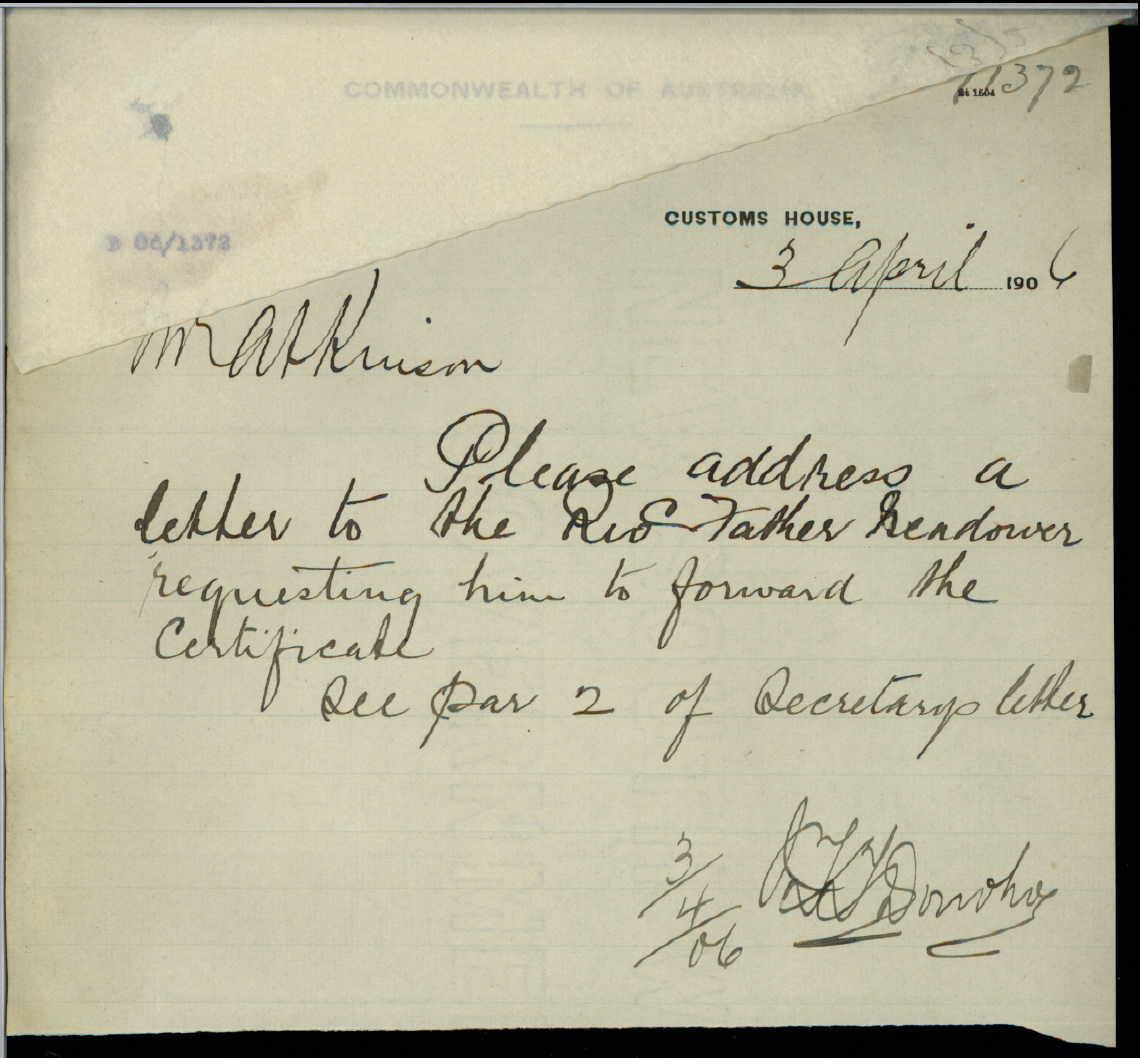 COMMONWEALTH OF AUSTRALIA.
1372
CUSTOMS HOUSE,
B 06/1372
3 April 1906
Mr Atkinson
Please address a
letter to the Revd Father
requesting him to forward the
Certificate
See par 2 of Secretarys letter
3/4/06